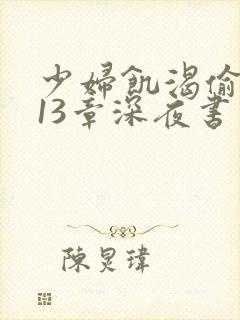 少婦飢渴偷
13章深夜書
陳炅瑋